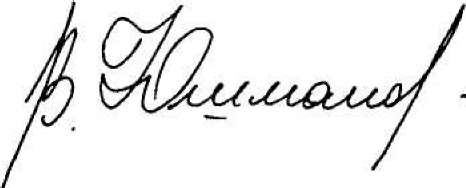 В. Юшманов